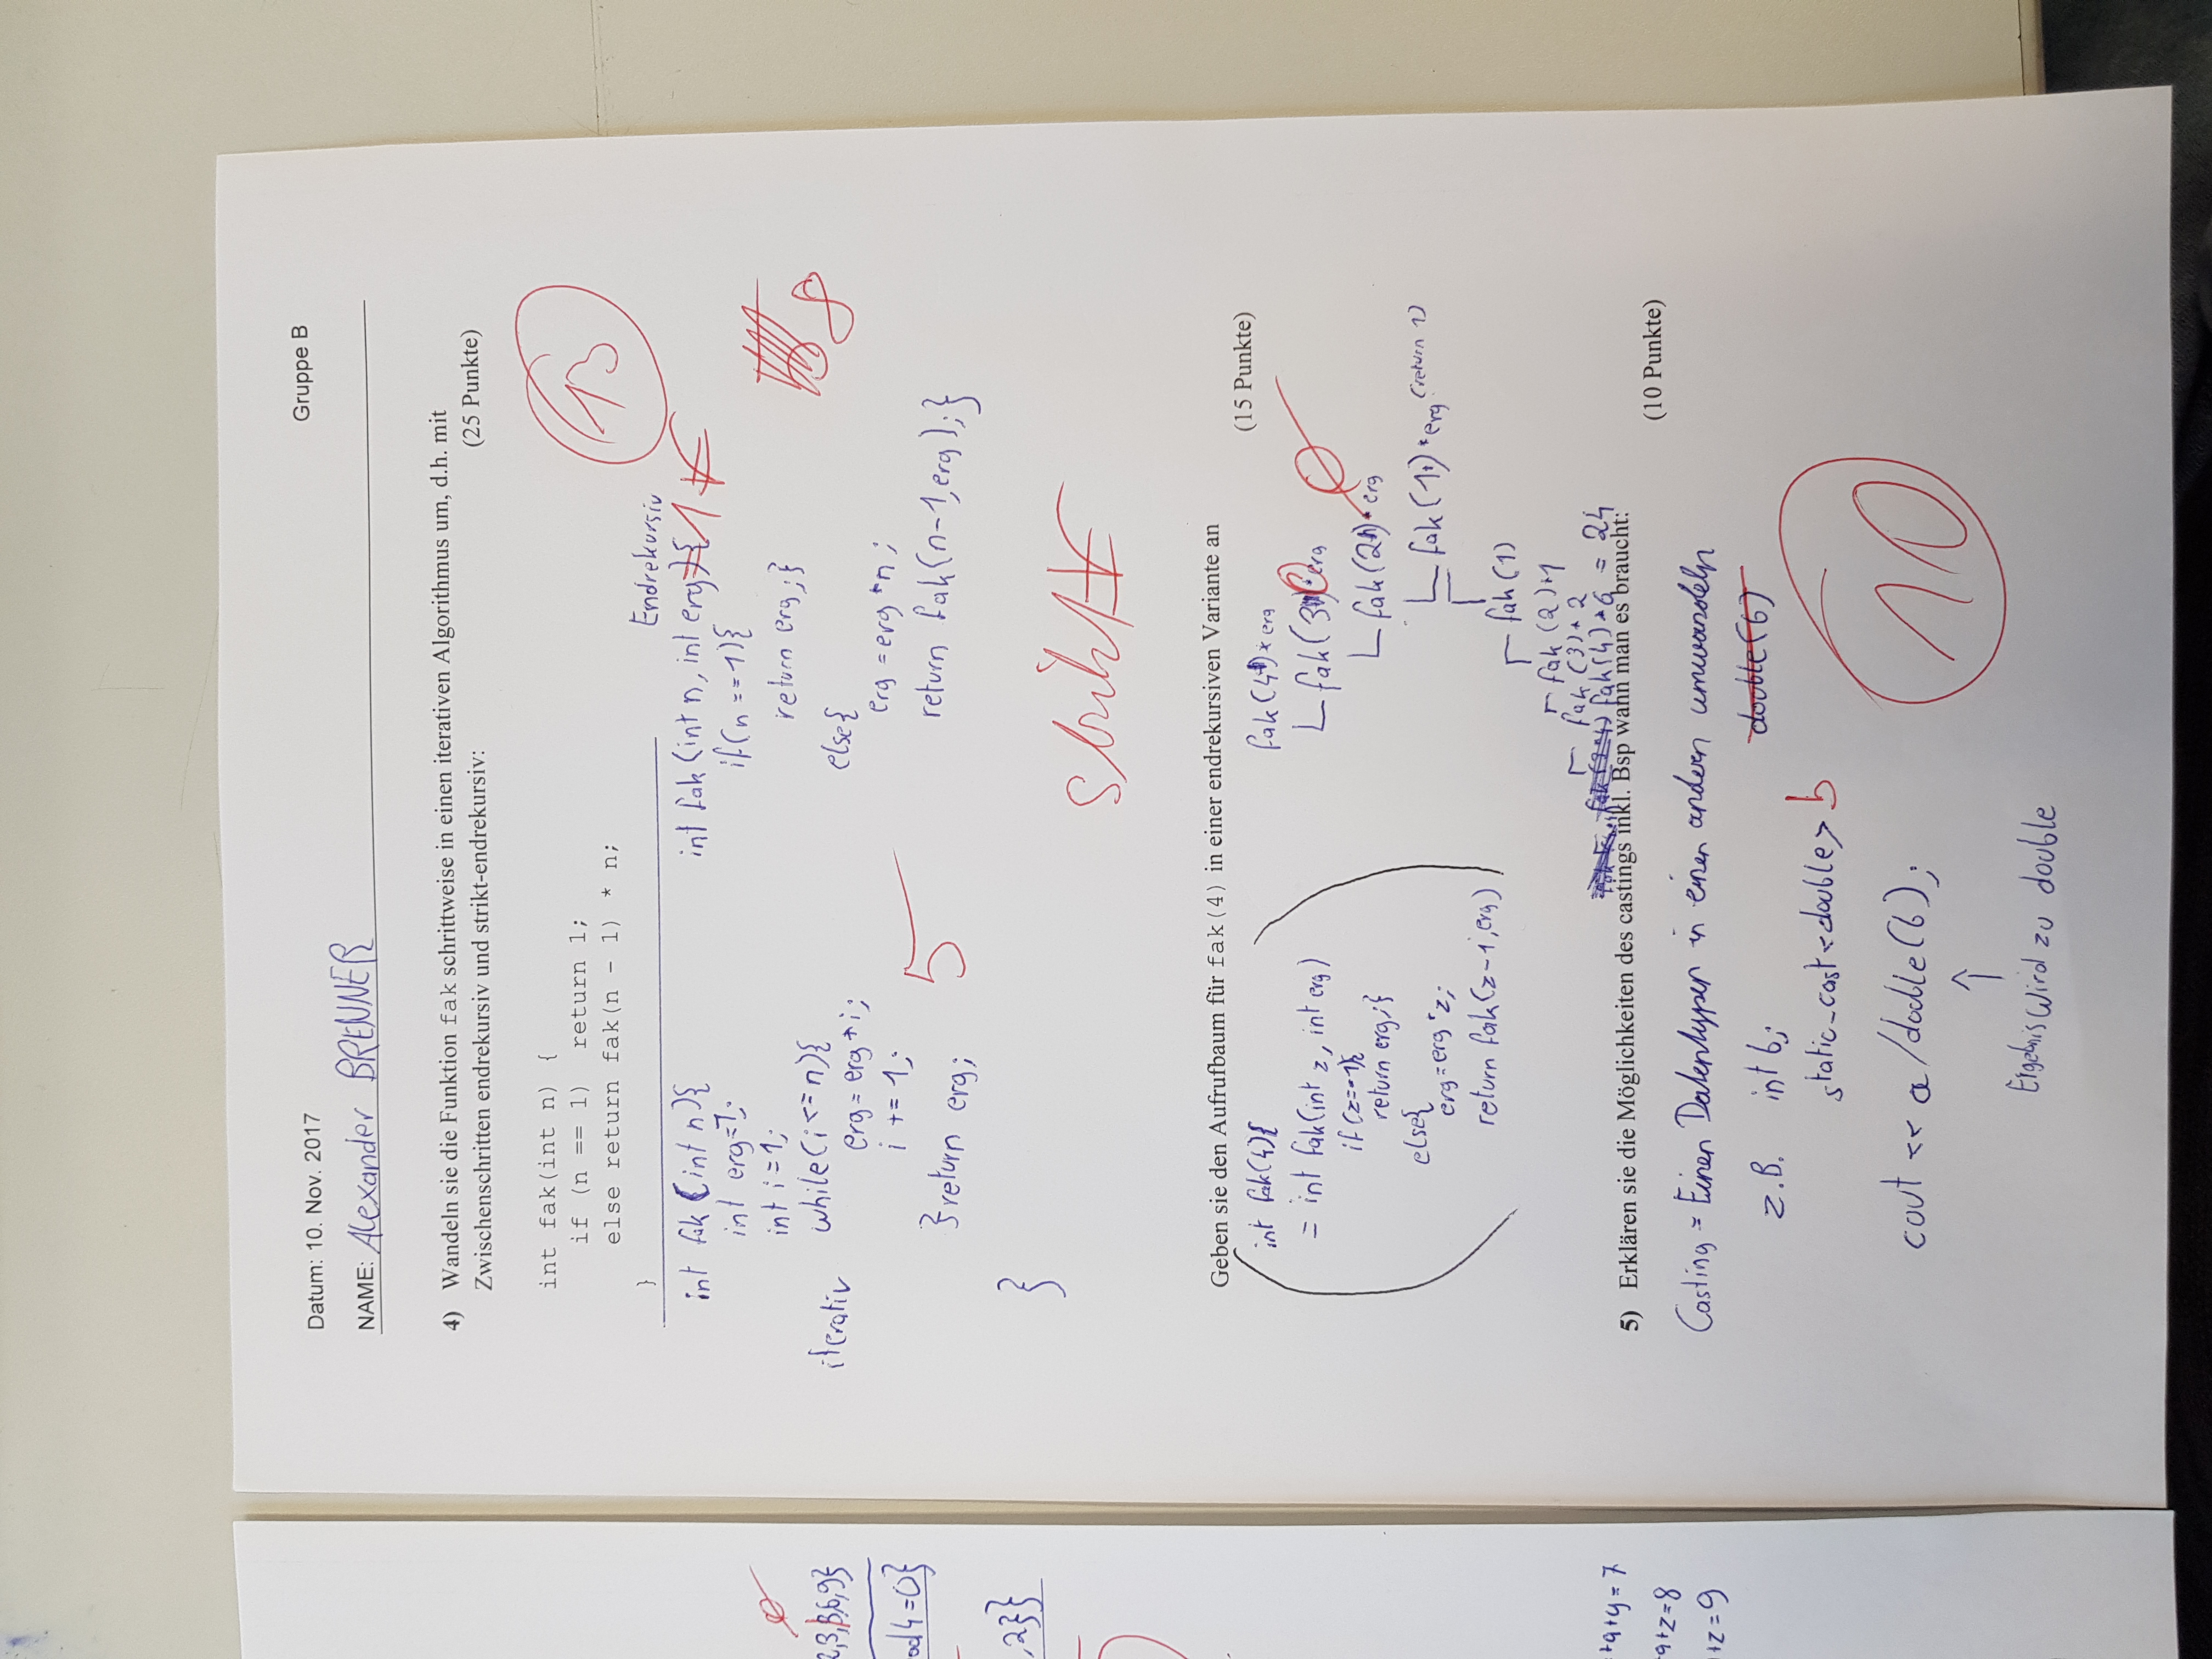 2,3,3,6,9}
od4=0}
,2}}
+a+y=7
+a+z=8
+z=9
Datum: 10. Nov. 2017
Gruppe B
NAME: Alexander BRENNER
4) Wandeln sie die Funktion fak schrittweise in einen iterativen Algorithmus um, d.h. mit
Zwischenschritten endrekursiv und strikt-endrekursiv:
(25 Punkte)
int fak(int n) {
if (n == 1) return 1;
else return fak(n - 1) * n;
}
13
int fak (int n){
int erg=1;
int i=1;
iterativ
while(i<=n){
erg=erg*i;
i += 1;
}return erg;
}
5
Endrekursiv
int fak (int n, int erg){ =1
if(n==1){
return erg;}
else{
erg=erg*n;
return fak(n-1,erg);}
8
strikt
Geben sie den Aufrufbaum für fak(4) in einer endrekursiven Variante an
(15 Punkte)
int fak(4){
= int fak(int z, int erg)
if(z==1){
return erg;}
else{
erg=erg*z;
return fak(z-1,erg)
fak(4)*erg
fak(3)*erg
fak(2)*erg
fak(1)*erg (return 1)
fak(1)
fak(2)*1
fak(3)*2
fak(4)*6 = 24
5) Erklären sie die Möglichkeiten des castings inkl. Bsp wann man es braucht:
(10 Punkte)
Casting = Einen Datentypen in einen andern umwandeln
z.B. int b;
double(b)
static_cast<double> b
cout << a/double(b);
10
Ergebnis wird zu double